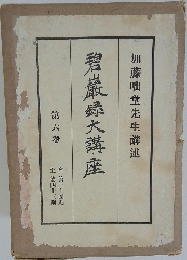 加藤咄堂先生講述
碧巖録大講座
第六巻